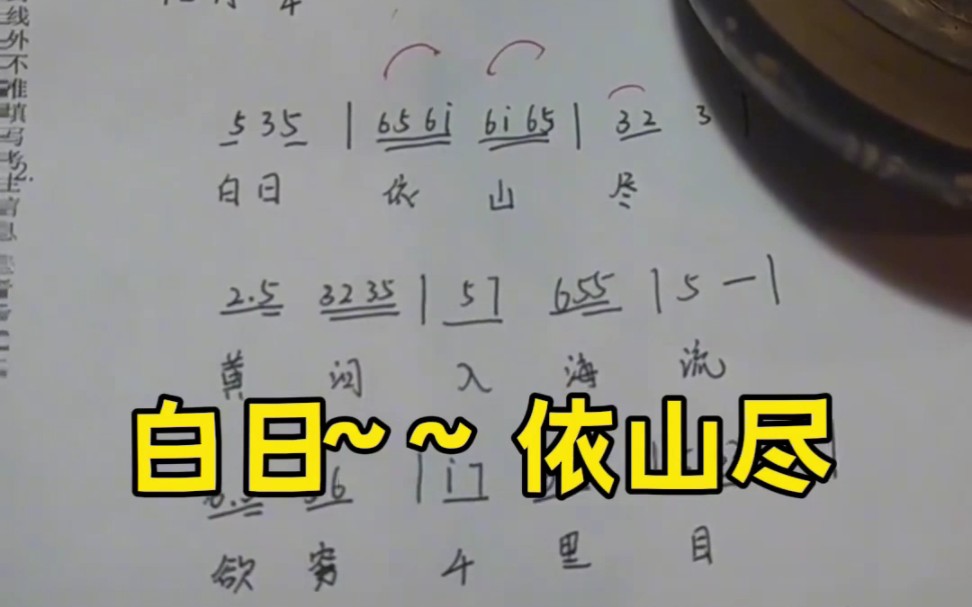 线外不准填写考生信息
2.
4
5 3 5 | 6 5 6 i 6 i 6 5 | 3 2 3 |
白日 依 山 尽
2.5 3 2 3 5 | 5 7 6 5 5 | 5 — |
黄 河 入 海 流
白日~~依山尽
6 | i 7
欲 穷 千 里 目